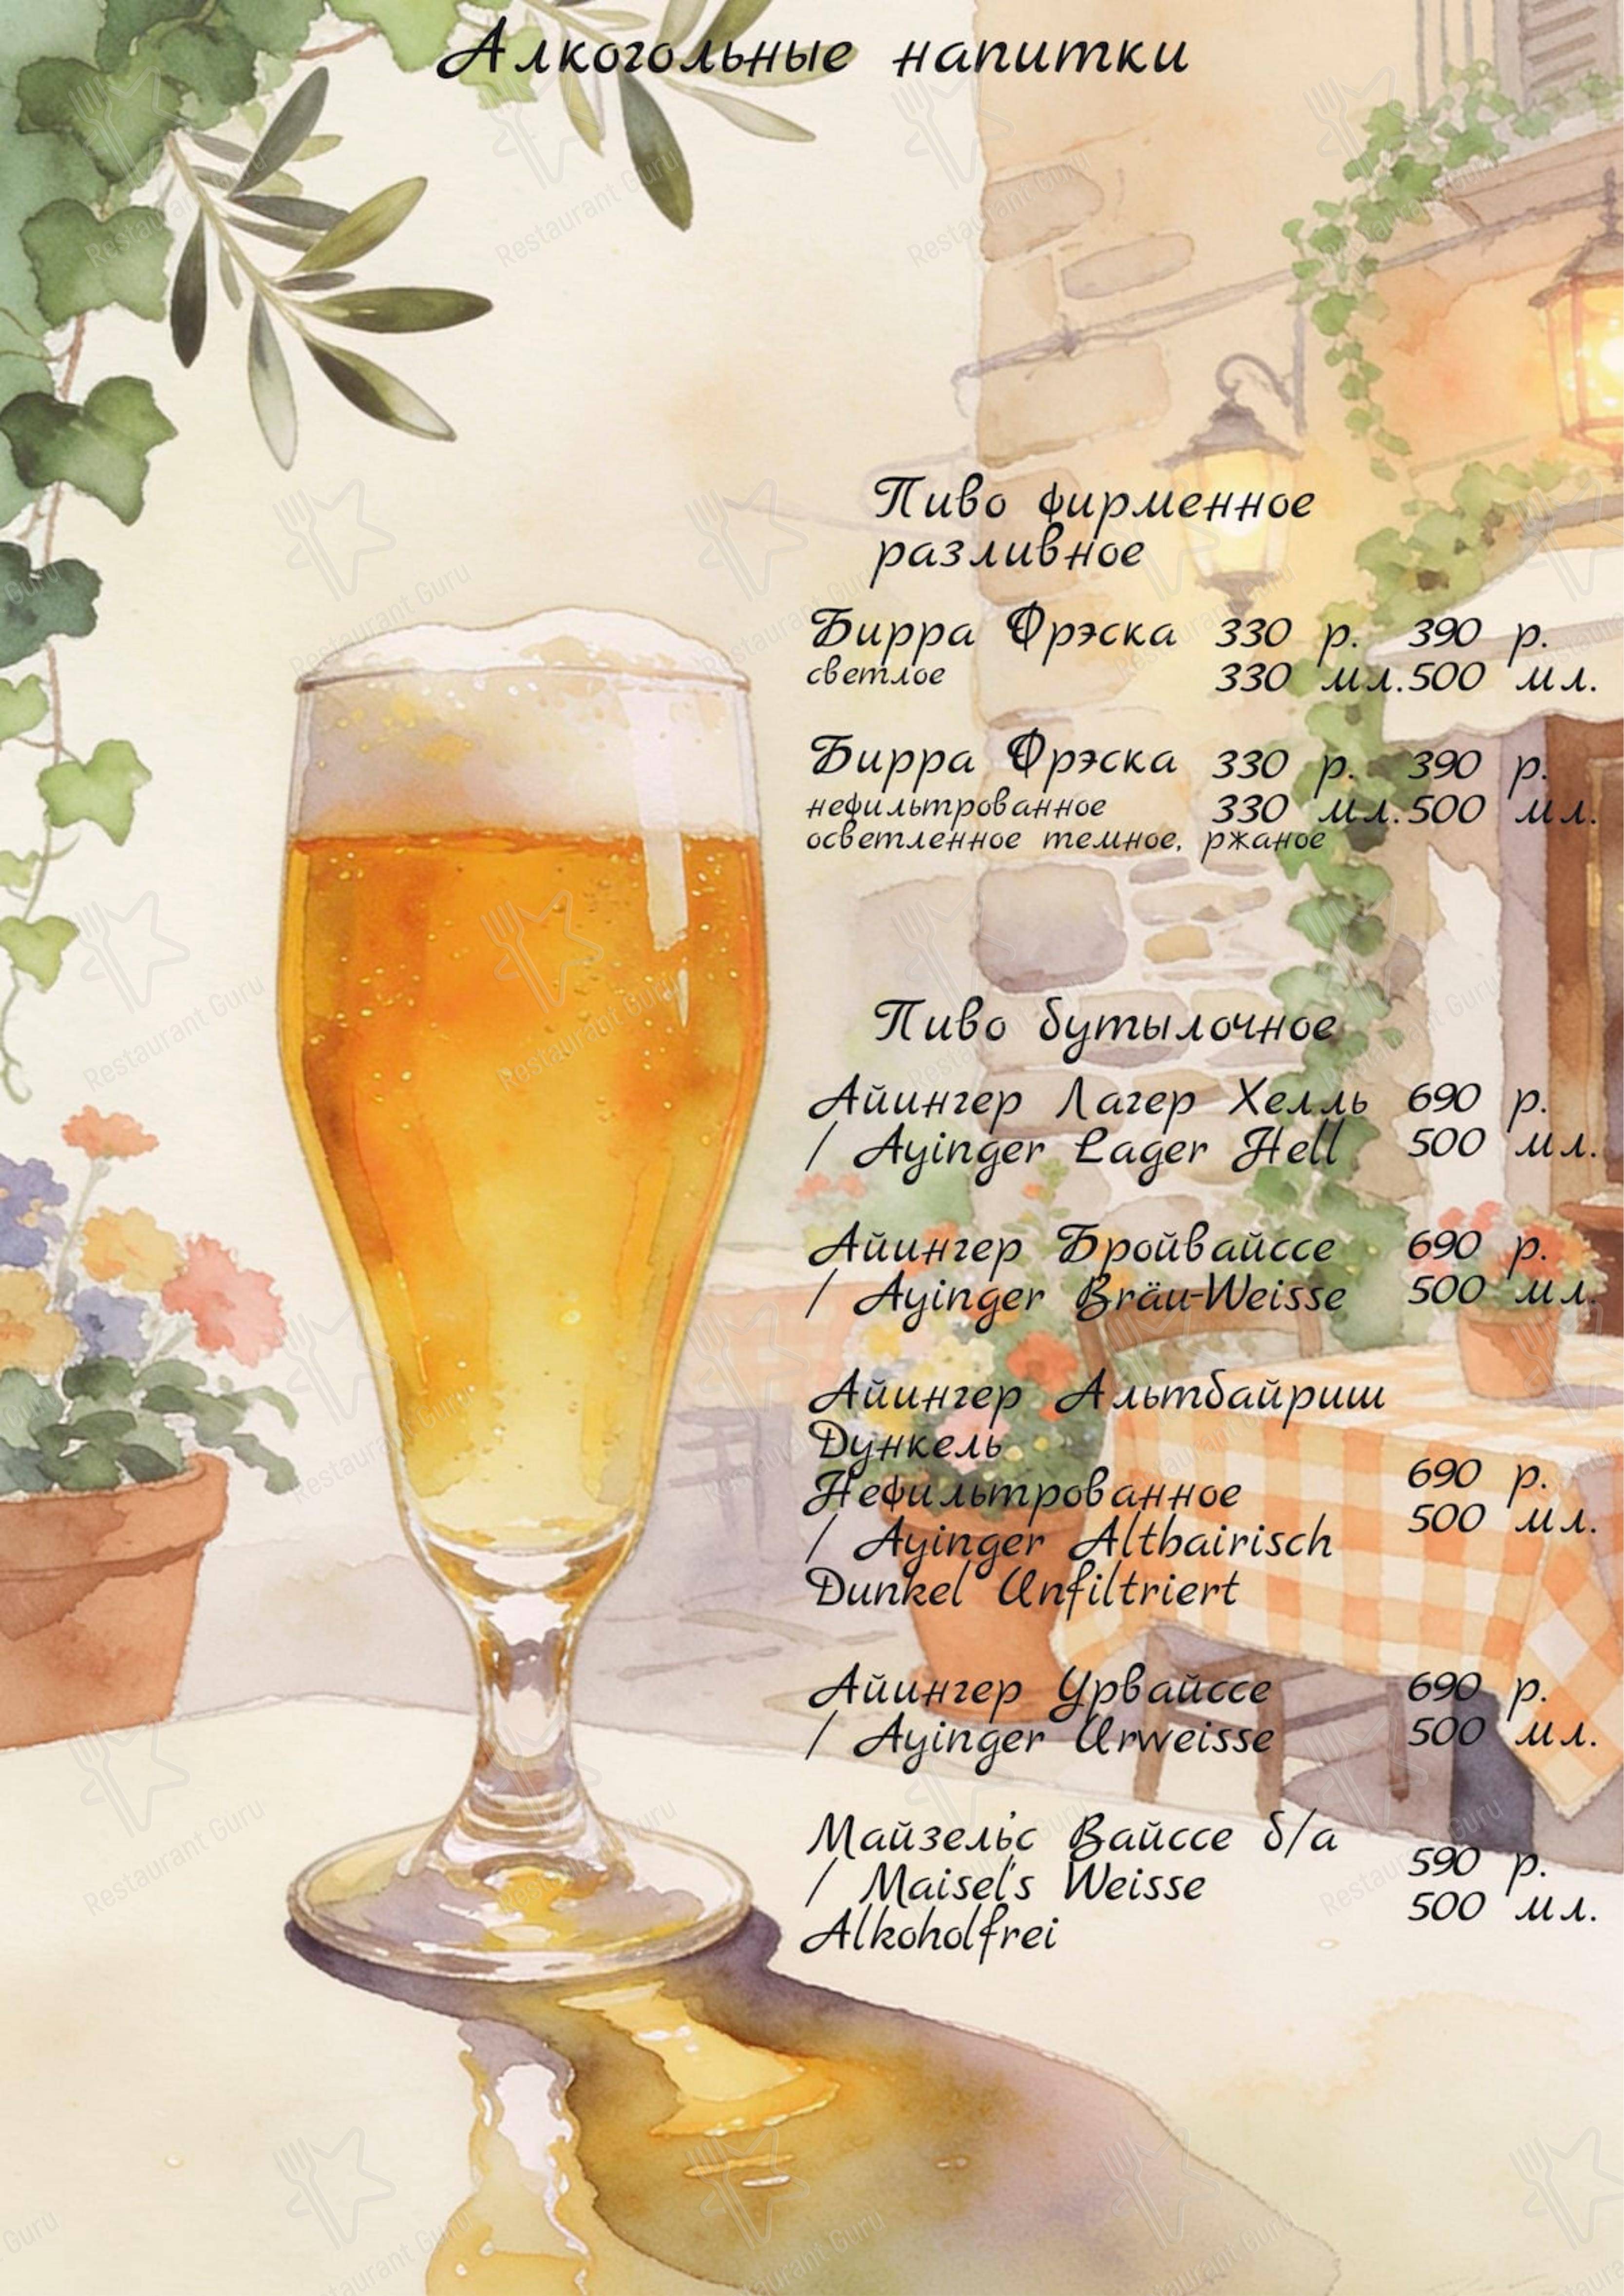 Алкогольные напитки
Пиво фирменное
разливное
Бирра Фрэска 330 р. 390 р.
светлое 330 мл. 500 мл.
Бирра Фрэска 330 р. 390 р.
нефильтрованное 330 мл. 500 мл.
осветленное темное, ржаное
Пиво бутылочное
Айингер Лагер Хелль 690 р.
/ Ayinger Lager Hell 500 мл.
Айингер Бройвайссе 690 р.
/ Ayinger Bräu-Weisse 500 мл.
Айингер Альтбайриш
Дункель
Нефильтрованное
/ Ayinger Altbairisch
Dunkel Unfiltriert
690 р.
500 мл.
Айингер Урвайссе 690 р.
/ Ayinger Urweisse 500 мл.
Майзель'с Вайссе б/а
/ Maisel's Weisse
Alkoholfrei
590 р.
500 мл.
Restaurant Guru